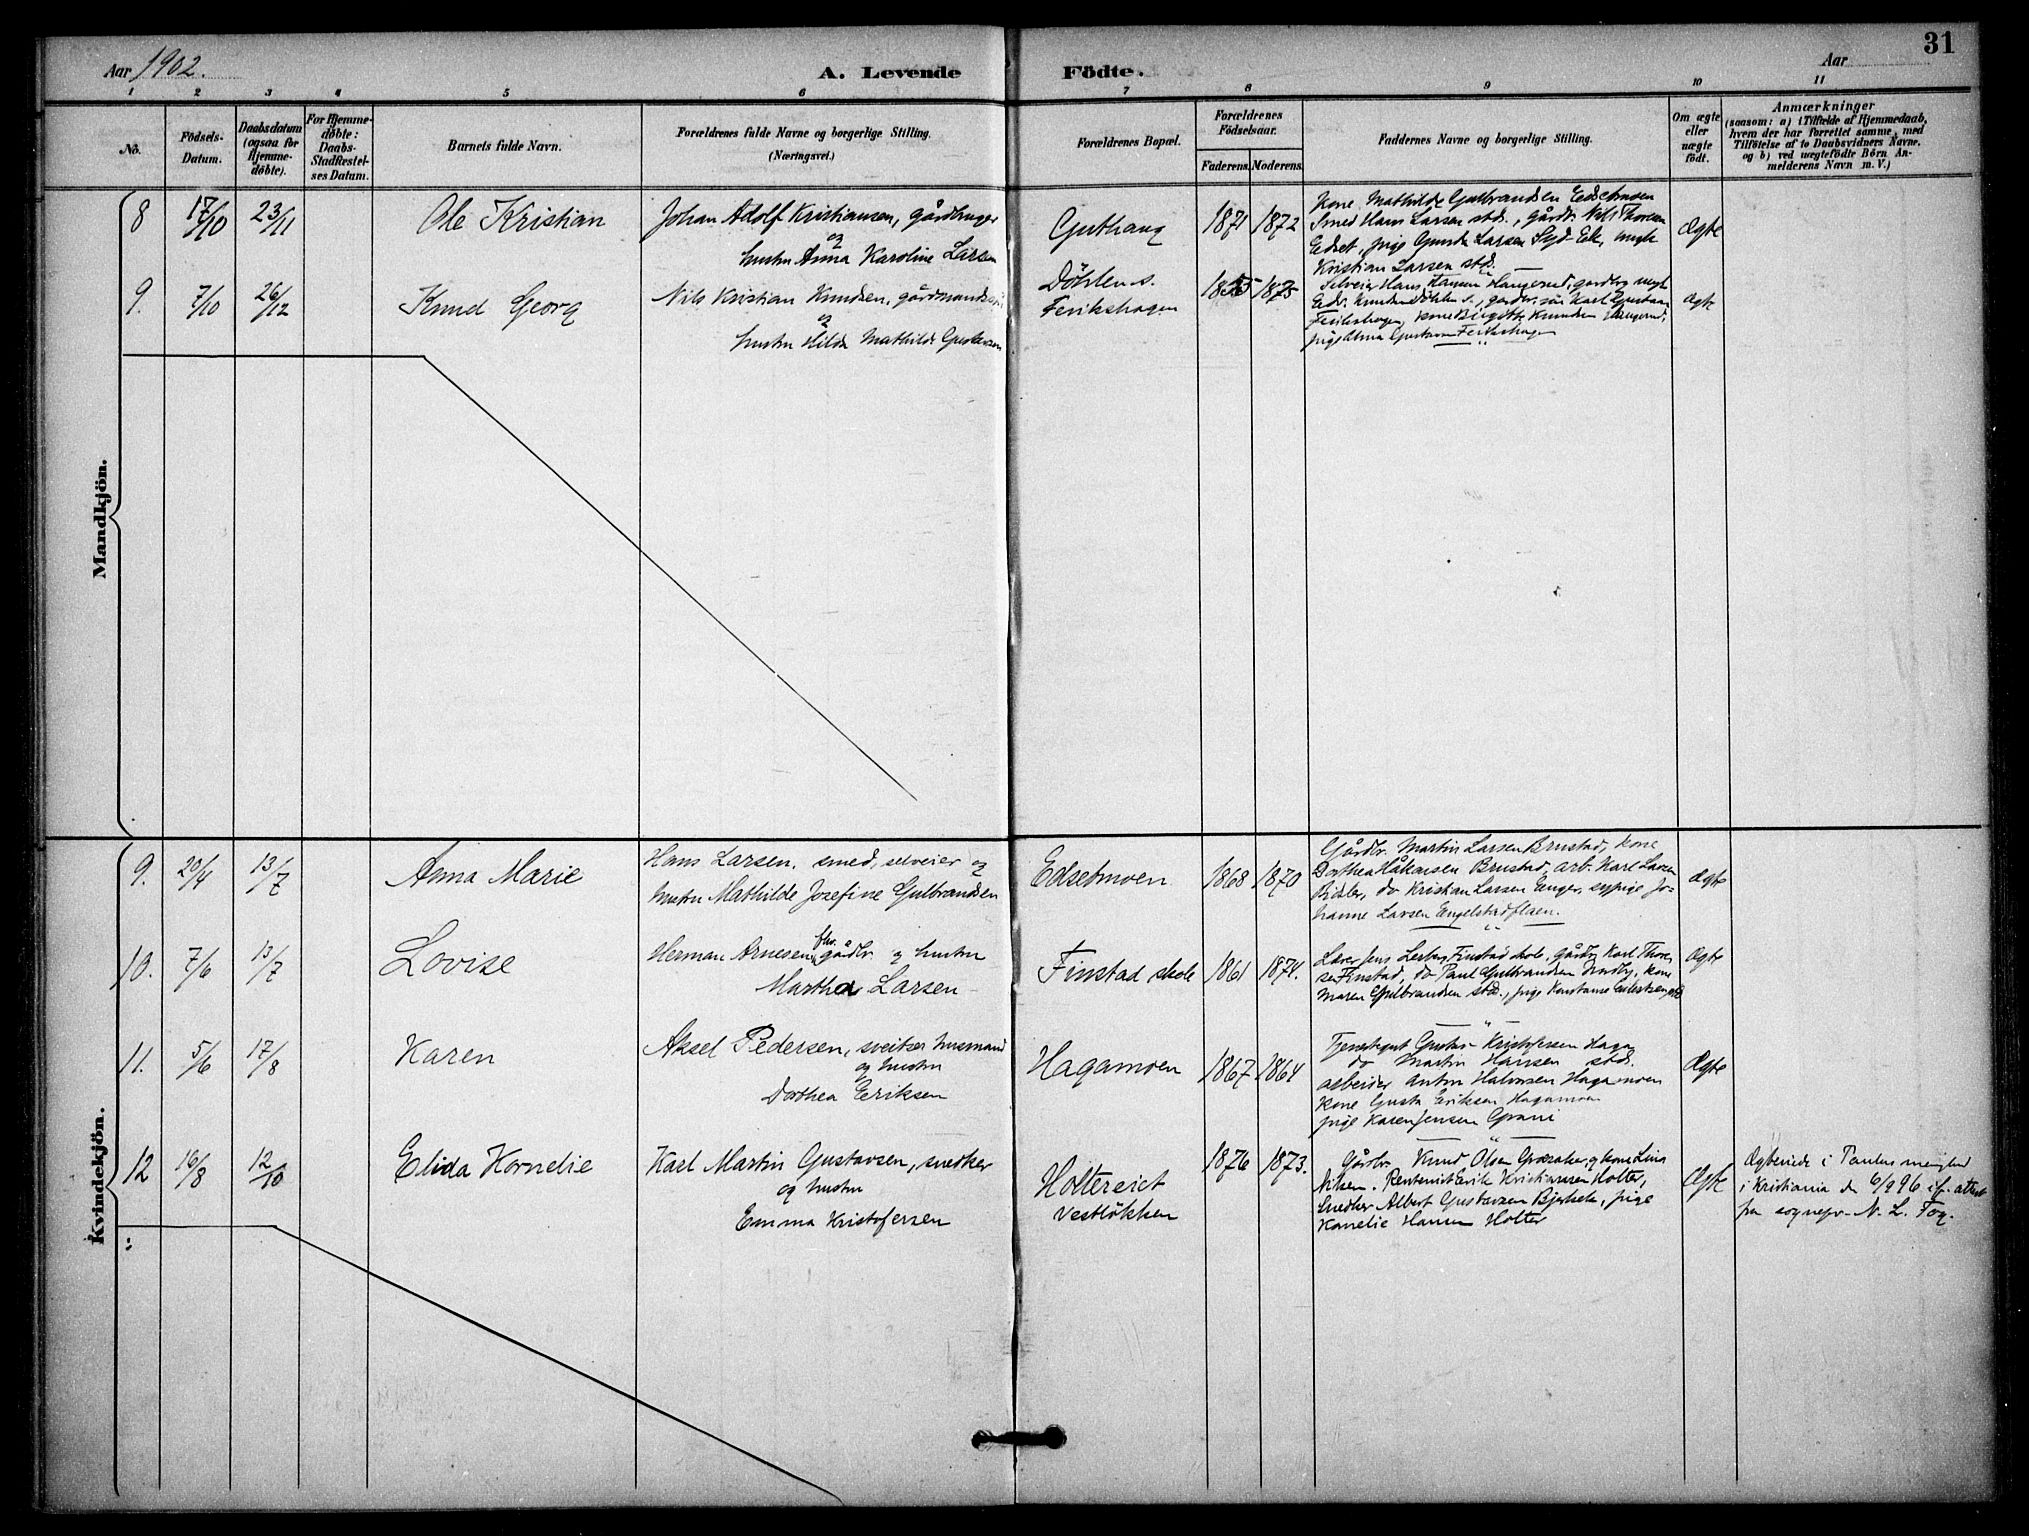 31
Aar 1902.
A. Levende
Födte.
Aar
1 2 3 4 5 6 7 8 9 10 11
No.
Födsels-Datum.
Daabsdatum (ogsaa for Hjemmedøbte).
For Hjemmedøbte: Daabs-Stadfæstelses Datum.
Barnets fulde Navn.
Forældrenes fulde Navne og borgerlige Stilling.
(Næringsvei.)
Forældrenes Bopæl.
Forældrenes Födselsaar.
Faderens. Moderens.
Faddernes Navne og borgerlige Stilling.
Om ægte eller uægte födt.
Anmærkninger
(saasom: a) i Tilfælde af Hjemmedaab,
hvem der har forrettet samme, med
Tilföielse af to Daabsvidners Navne,
og b) ved uægtefödte Börn An-
melderens Navn m. V.)
Mandkjön.
8 17/10 23/11 Ole Kristian
Johan Adolf Kristiansen, gårdbruger
og
hustru Anna Karoline Larsen
Guthaug
1871 1872
Kone Mathilde Gulbrandsen Edsetmoen
Smed Hans Larsen stds., gårdbr. Nils Thoresen
Edset, pige Gunda Larsen Syd-Eik, ungk
Kristian Larsen std.
Ægte
9. 7/10 26/12 Knud Georg
Nils Kristian Knudsen, gårdmands
og
hustru Hilda Mathilde Gustavsen
Döhlen s.
Ferikshagen
1875
Selveier Hans Hansen Haugerud, gardbr ungk
Edv. Knudsen Döhlen s., gardbr. sön Karl Gustavsen
Ferikshagen, kone Birgitte Knudsen Haugerud,
pige Anna Gustavsen Ferikshagen
Ægte
Kvindekjön.
9. 20/4 13/7 Anna Marie
Hans Larsen, smed, selveier og
hustru Mathilde Josefine Gulbrandsen
Edsetmoen
1868 1870
Gårdbr. Martin Larsen Brustad, kone
Dorthea Håkansen Brustad, arb. Karl Larsen
do Kristian Larsen Enger, sypige Jo-
hanne Larsen Engelstadflaen.
Ægte
10. 7/6 13/7 Lovise
Herman Arnesen, fhv. gårdbr og hustru
Martha Larsen
Finstad skole
1861 1874.
Lærer Jens Finstad skole, gårdbr Karl Thore-
sen Finstad, do Paul Gulbrandsen Nordby, kone
Maren Gulbrandsen stds., pige Konstanse
Ægte
11. 5/6 17/8 Karen
Aksel Pedersen, sveitser husmand
og hustru
Dorthea Eriksen
Hagamoen
1867 1864
Tjenestegut Gustav Kristofersen Haga
do Martin Hansen stds.
arbeider Anton Halvorsen Hagamoen
Kone Gusta Eriksen Hagamoen
pige Karen Jensen Grani
Ægte
12 16/8 12/10 Elida Kornelie
Karl Martin Gustavsen, snedker
og hustru
Emma Kristofersen
Holtereiet
Vestlökken
1876 1873.
Gårdbr. Knud Olsen og kone Lina
Nilsen. Rentenist Erik Kristiansen Holter,
Snedker Albert Gustavsen Bjerkeli, pige
Kornelie Hansen Holter
Ægte
Ægteviede i Paulus menighed
i Kristiania den 6/9 96 if. attest
fra sognepr. N. L. Fog.